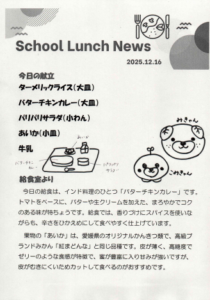 School Lunch News
2025.12.16
今日の献立
ターメリックライス(大皿)
バターチキンカレー(大皿)
パリパリサラダ(小わん)
あいか(小皿)
牛乳
みきゃん
こみきゃん
給食室より
今日の給食は、インド料理のひとつ「バターチキンカレー」です。
トマトをベースに、バターや生クリームを加えた、まろやかでコク
のある味が特ちょうです。給食では、香りづけにスパイスを使いな
がらも、辛さをひかえめにして食べやすく仕上げています。
果物の「あいか」は、愛媛県のオリジナルかんきつ類で、高級ブ
ランドみかん「紅まどんな」と同じ品種です。皮が薄く、高糖度で
ゼリーのような食感が特徴で、蜜が豊富に入り甘みが強いですが、
皮がむきにくいためカットして食べるのがおすすめです。